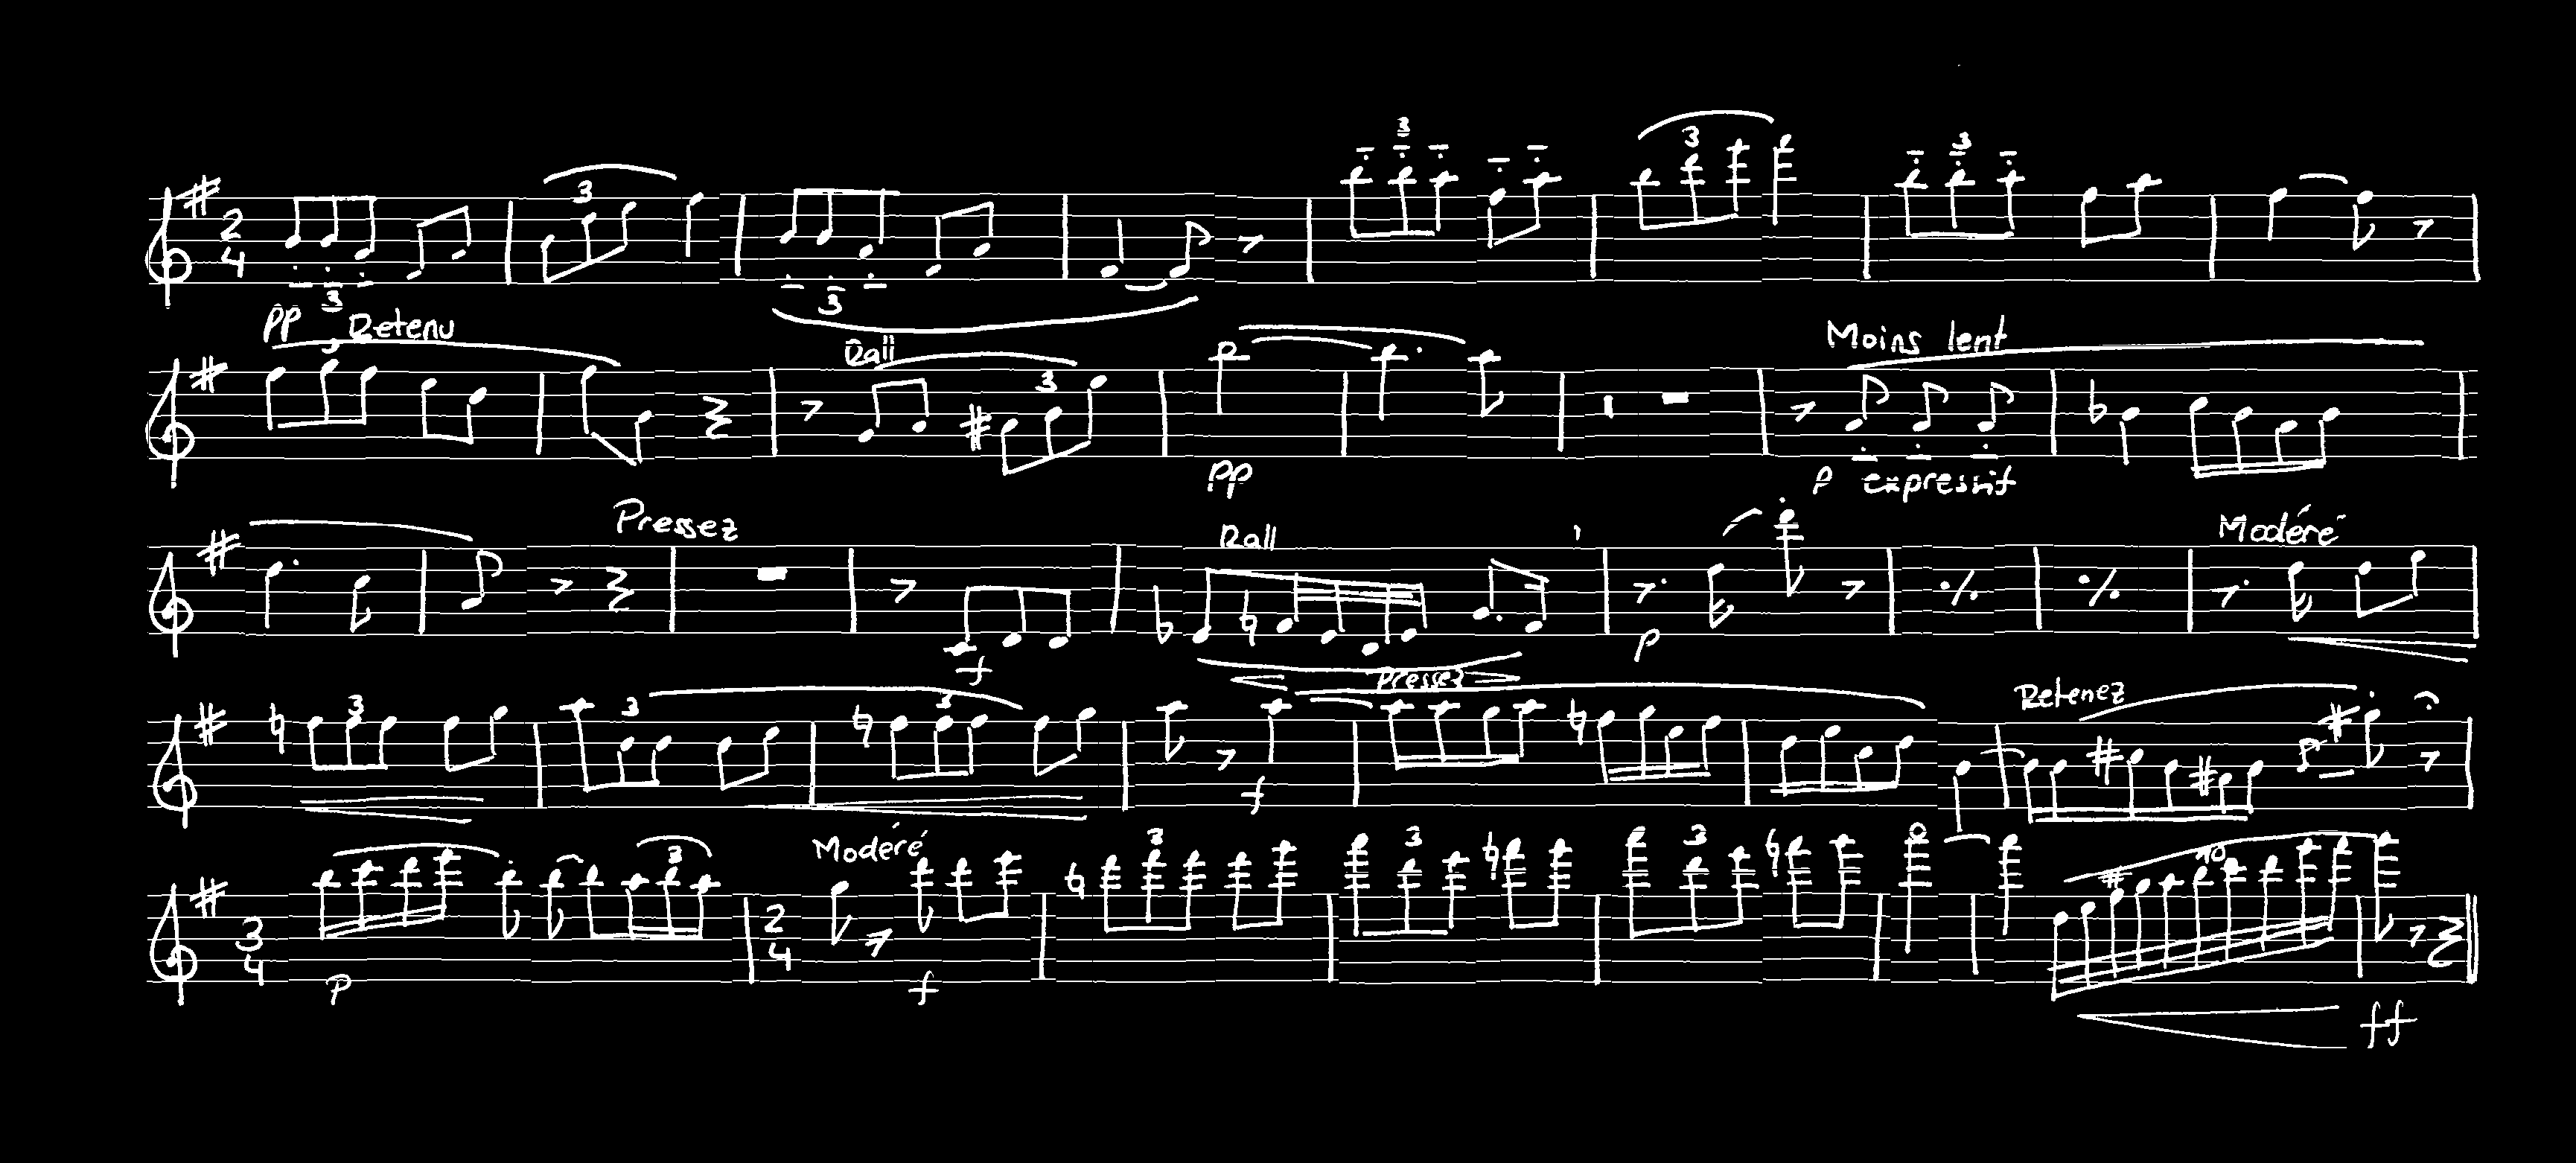 3
3 3 3
2
4 3 3
pp Retenu
3 Rall 3 Moins lent
pp p expressif
Pressez Rall Modéré
f p
Pressez
3 3 3 Retenez
f
Modéré
3 3 3 3 10
3 2
4 4
p f ff